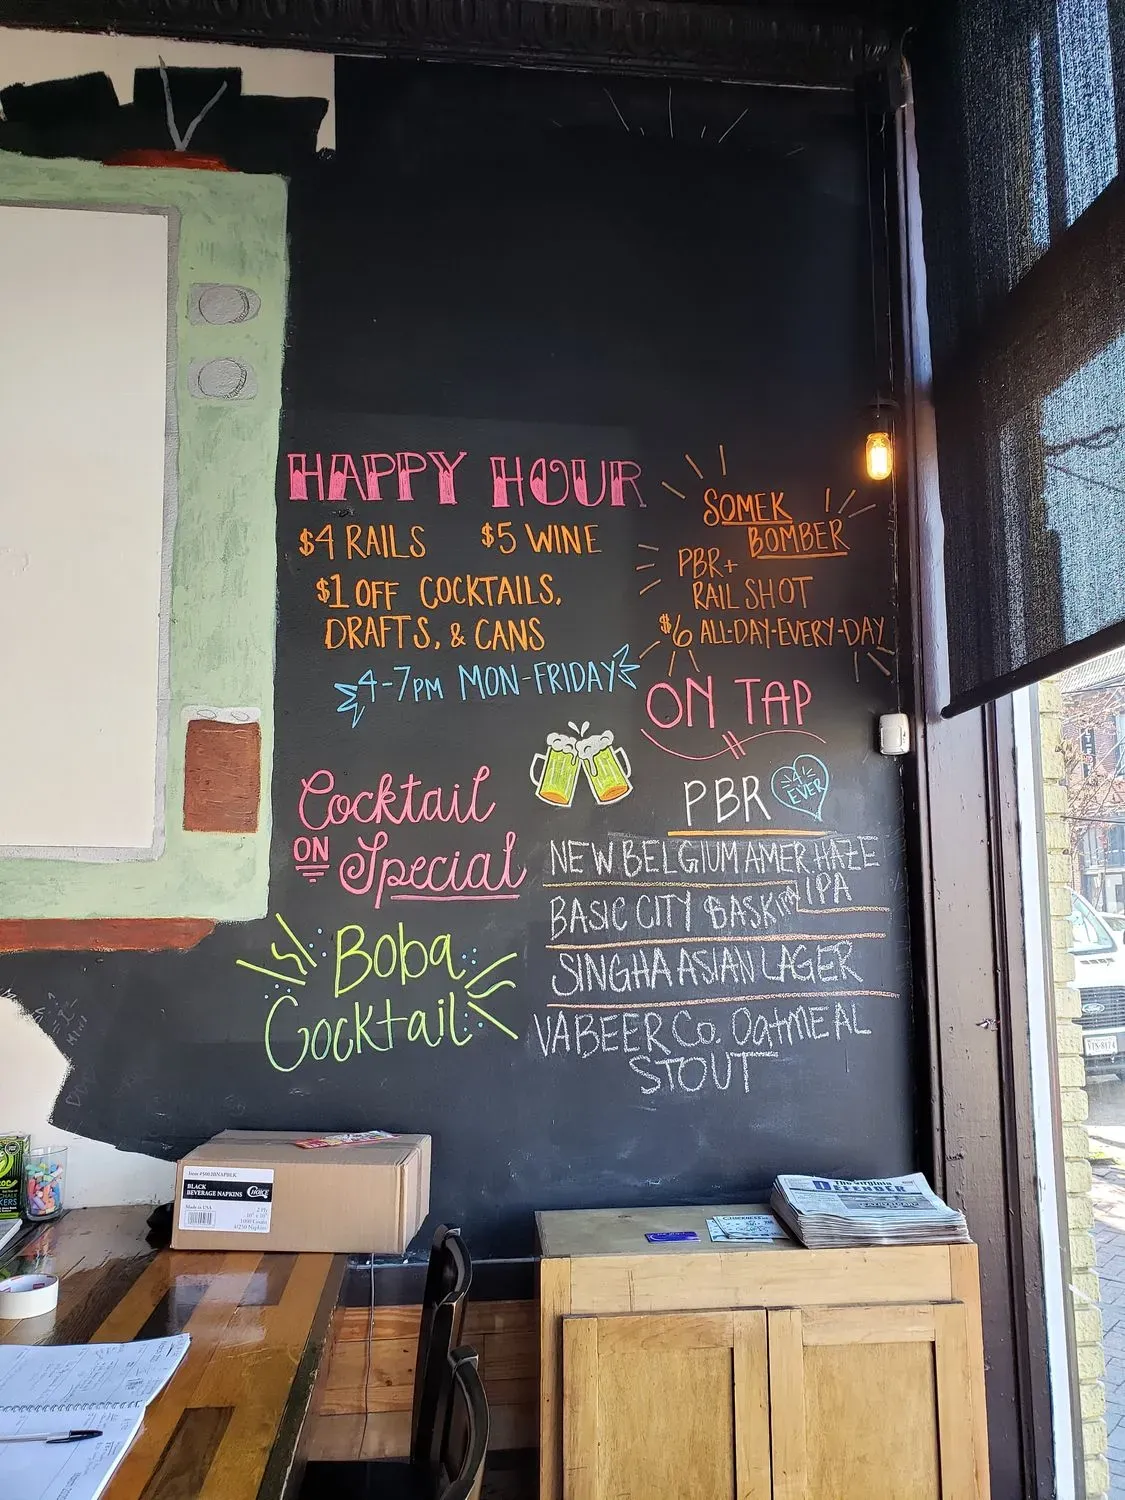 HAPPY HOUR
$4 RAILS $5 WINE
$1 OFF COCKTAILS,
DRAFTS, & CANS
4-7PM MON-FRIDAY
SOMEK
BOMBER
PBR +
RAIL SHOT
$6 ALL-DAY-EVERY-DAY
ON TAP
PBR
4
EVER
NEW BELGIUM AMER HAZE
IPA
BASIC CITY
SINGHA ASIAN LAGER
VA BEER CO. OATMEAL
STOUT
Cocktail
ON
Special
Boba
Cocktail
BLACK
BEVERAGE NAPKINS
CHOICE
Made in USA
2 Ply
The Virginia
DEFENDER